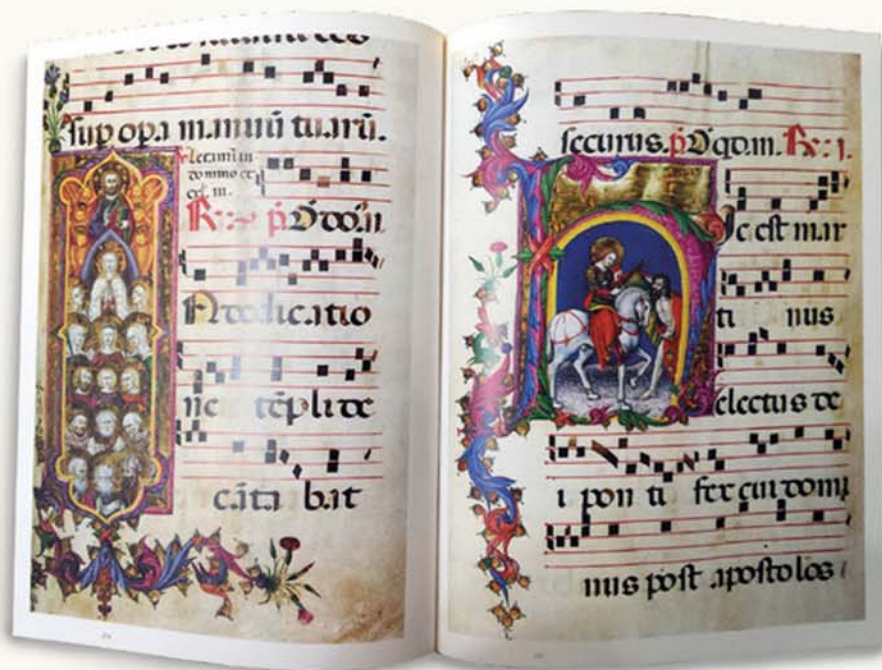 sup opa manuū tuarū.
In dedicatio
ne tēpli de
cāta bat
securus. p̄ D̄ qd. m. R: j.
Hic est mar
ti nus
electus de
i pon ti fex cui domi
nus post apostolos